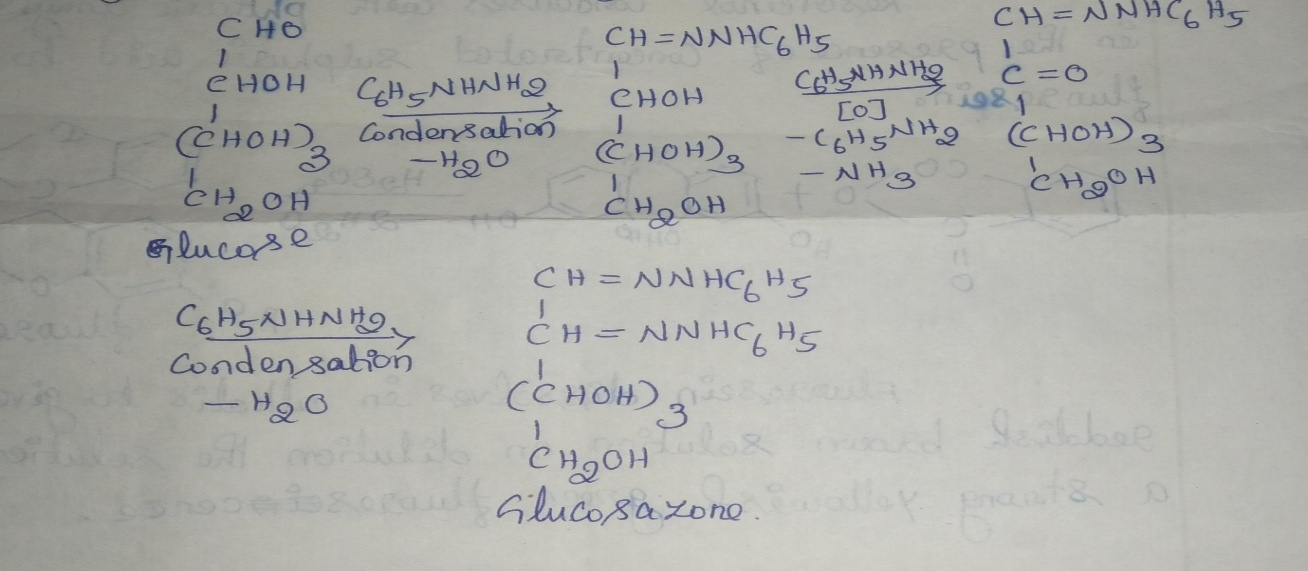 CHO
CHOH
(CHOH)3
CH2OH
Glucose
C6H5NHNH2
Condensation
-H2O
CH=NNHC6H5
CHOH
(CHOH)3
CH2OH
C6H5NHNH2
[O]
-C6H5NH2
-NH3
CH=NNHC6H5
C=O
(CHOH)3
CH2OH
C6H5NHNH2
Condensation
-H2O
CH=NNHC6H5
CH=NNHC6H5
(CHOH)3
CH2OH
Glucosazone.